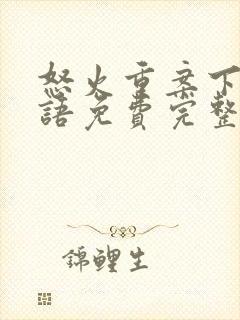 怒火重案下
語免費完整
錦鯉生